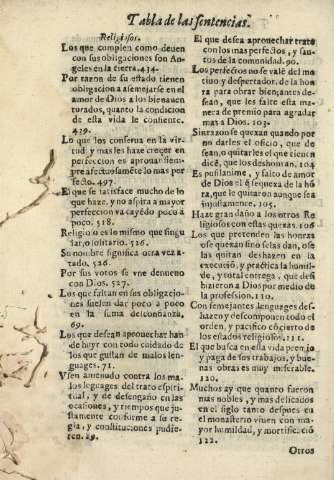 Tabla de las sentencias.
Religiosos.
Los que cumplen como deuen
con sus obligaciones son An
geles en la tierra. 434.
Por razon de su estado tienen
obligacion a asemejarse en el
amor de Dios a los bienauen
turados, quanto la condicion
de esta vida le consiente.
429.
Lo que los conserua en la vir
tud y mas les haze crecer en
perfeccion es aprouar siem-
pre afectuosamēte lo mas per
fecto. 497.
El que se satisface mucho de lo
que haze, y no aspira a mayor
perfeccion va cayēdo poco a
poco. 518.
Religioso es lo mismo que singu
lar, o solitario. 526.
Su nombre significa otra vez a-
tado. 526.
Por sus votos se vne denueuo
con Dios. 527.
Los que faltan en sus obligacio-
nes suelen dar poco a poco
en la suma desconfianza,
69.
Los que desean aprouechar han
de huyr con todo cuidado de
los que gustan de malos len-
guages. 71.
Vsen amenudo contra los ma-
los leguages del trato espiri-
tual, y de desengaño en las
ocasiones, y tiempos que jus-
tamente conforme a su re-
gia, y constituciones pudie-
ren. 89.
El que desea aprouechar trate
con los mas perfectos, y san-
tos de la comunidad. 90.
Los perfectos no se valē del mo
tiuo y despertador, de la hon
ra para obrar bien, antes de-
sean, que les falte esta ma
nera de premio para agradar
mas a Dios. 103.
Sinrazon se quexan quando por
no darles el oficio, que de
sean, o quitarles el que tienen
dicē, que los deshonran. 104
Es pusilanime, y falto de amor
de Dios el q̃ se quexa de la hō
ra, que le quitaron aunque sea
injustamente. 105.
Haze gran daño a los otros Re
ligiosos con estas quexas. 106
Los que pretenden las honras
o se quexan sino se las dan, o se
las quitan deshazen en la
execució, y practica la humil-
de, y total entrega, que de si
hizieron a Dios por medio de
la profesion. 110.
Con semejantes lenguages des-
hazen y descomponen todo el
orden, y pacifico cōcierto de
los estados religiosos. 111.
El que busca en esta vida premio
y paga de sus trabajos, y bue-
nas obras es muy miserable.
120.
Muchos ay que quanto fueron
mas nobles, y mas delicados
en el siglo tanto despues en
el monasterio viuen con ma-
yor humildad, y mortificació
122.
Otros